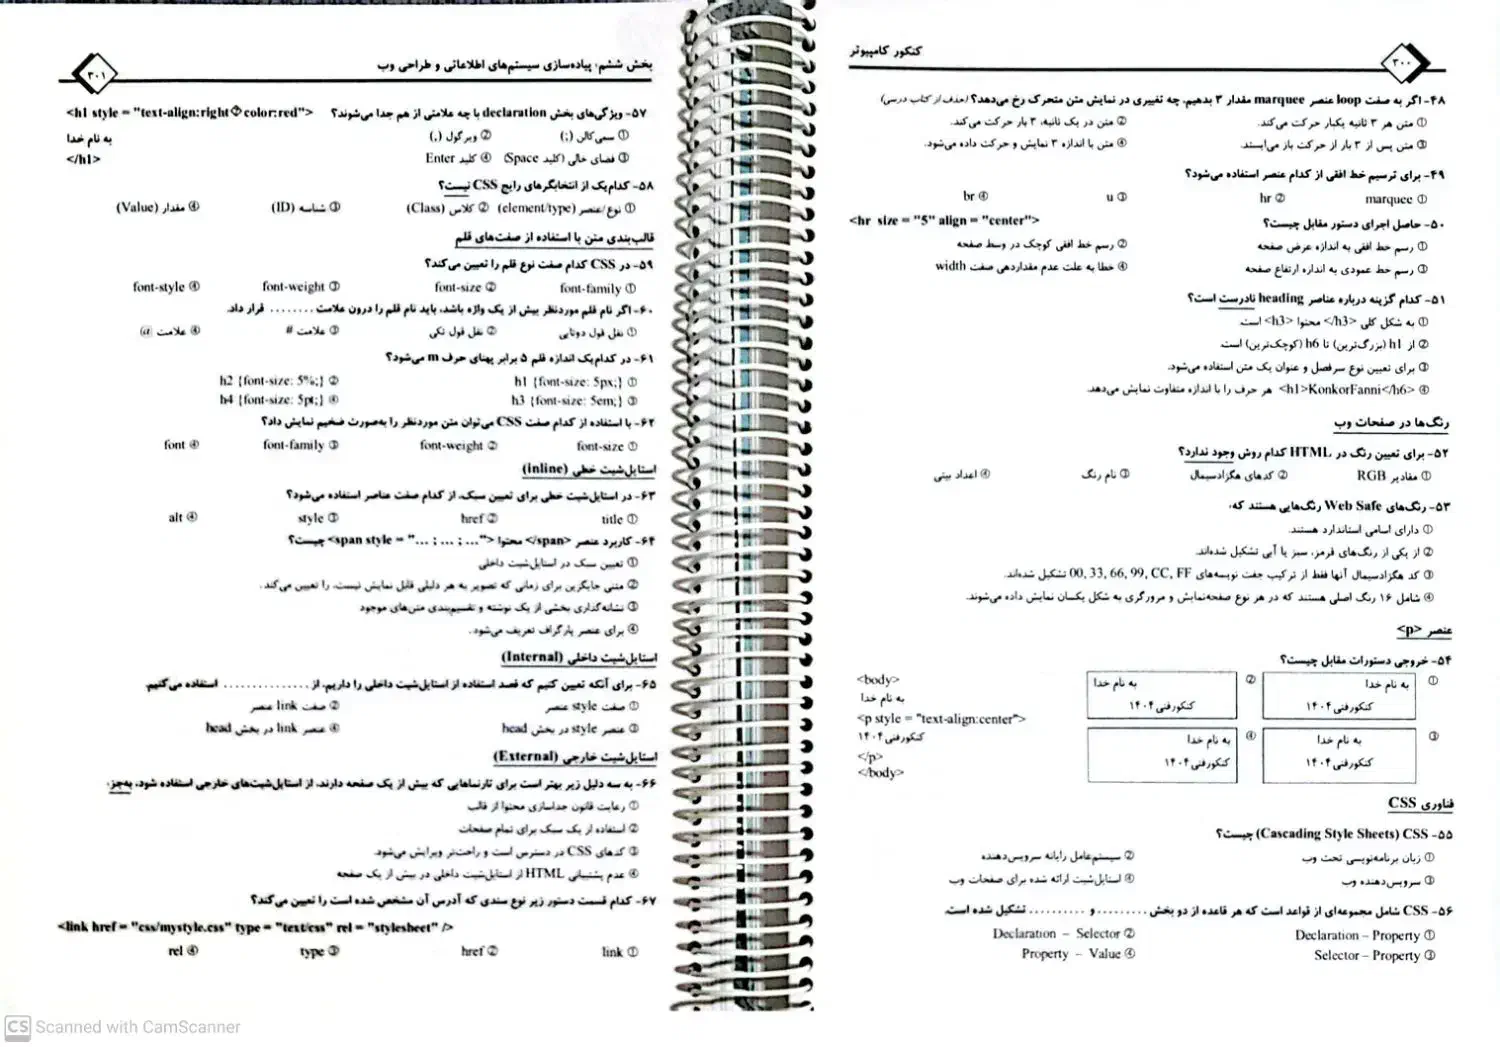 کنکور کامپیوتر
۳۰۰
۴۸- اگر به صفت loop عنصر marquee مقدار ۳ بدهیم، چه تغییری در نمایش متن متحرک رخ می‌دهد؟ (حذف از کتاب درسی)
① متن هر ۳ ثانیه یکبار حرکت می‌کند. ② متن در یک ثانیه، ۳ بار حرکت می‌کند.
③ متن پس از ۳ بار از حرکت باز می‌ایستد. ④ متن با اندازه ۳ نمایش و حرکت داده می‌شود.
۴۹- برای ترسیم خط افقی از کدام عنصر استفاده می‌شود؟
① marquee ② hr ③ u ④ br
۵۰- حاصل اجرای دستور مقابل چیست؟ <hr size = "5" align = "center">
① رسم خط افقی به اندازه عرض صفحه ② رسم خط افقی کوچک در وسط صفحه
③ رسم خط عمودی به اندازه ارتفاع صفحه ④ خطا به علت عدم مقداردهی صفت width
۵۱- کدام گزینه درباره عناصر heading نادرست است؟
① به شکل کلی <h3> محتوا </h3> است.
② از h1 (بزرگ‌ترین) تا h6 (کوچک‌ترین) است.
③ برای تعیین نوع سرفصل و عنوان یک متن استفاده می‌شود.
④ <h1>KonkorFanni</h6> هر حرف را با اندازه متفاوت نمایش می‌دهد.
رنگ‌ها در صفحات وب
۵۲- برای تعیین رنگ در HTML کدام روش وجود ندارد؟
① مقادیر RGB ② کدهای هگزادسیمال ③ نام رنگ ④ اعداد بیتی
۵۳- رنگ‌های Web Safe رنگ‌هایی هستند که:
① دارای اسامی استاندارد هستند.
② از یکی از رنگ‌های قرمز، سبز یا آبی تشکیل شده‌اند.
③ کد هگزادسیمال آنها فقط از ترکیب جفت نویسه‌های 00, 33, 66, 99, CC, FF تشکیل شده‌اند.
④ شامل ۱۶ رنگ اصلی هستند که در هر نوع صفحه‌نمایش و مرورگری به شکل یکسان نمایش داده می‌شوند.
عنصر <p>
۵۴- خروجی دستورات مقابل چیست؟
<body>
به نام خدا
<p style = "text-align:center">
کنکورفنی ۱۴۰۴
</p>
</body>
① به نام خدا
کنکورفنی ۱۴۰۴
② به نام خدا
کنکورفنی ۱۴۰۴
③ به نام خدا
کنکورفنی ۱۴۰۴
④ به نام خدا
کنکورفنی ۱۴۰۴
فناوری CSS
۵۵- CSS (Cascading Style Sheets) چیست؟
① زبان برنامه‌نویسی تحت وب ② سیستم‌عامل رایانه سرویس‌دهنده
③ سرویس‌دهنده وب ④ استایل‌شیت ارائه شده برای صفحات وب
۵۶- CSS شامل مجموعه‌ای از قواعد است که هر قاعده از دو بخش .......... و .......... تشکیل شده است.
① Declaration – Property ② Declaration – Selector
③ Selector – Property ④ Property – Value
بخش ششم: پیاده‌سازی سیستم‌های اطلاعاتی و طراحی وب
۳۰۱
۵۷- ویژگی‌های بخش declaration با چه علامتی از هم جدا می‌شوند؟ <h1 style = "text-align:right�color:red">
① سمی‌کالن (;) ② ویرگول (,) به نام خدا
③ فضای خالی (کلید Space) ④ کلید Enter </h1>
۵۸- کدام‌یک از انتخابگرهای رایج CSS نیست؟
① نوع/عنصر (element/type) ② کلاس (Class) ③ شناسه (ID) ④ مقدار (Value)
قالب‌بندی متن با استفاده از صفت‌های قلم
۵۹- در CSS کدام صفت نوع قلم را تعیین می‌کند؟
① font-family ② font-size ③ font-weight ④ font-style
۶۰- اگر نام قلم موردنظر بیش از یک واژه باشد، باید نام قلم را درون علامت ........ قرار داد.
① نقل قول دوتایی ② نقل قول تکی ③ علامت # ④ علامت @
۶۱- در کدام‌یک اندازه قلم ۵ برابر پهنای حرف m می‌شود؟
① h1 {font-size: 5px;} ② h2 {font-size: 5%;}
③ h3 {font-size: 5em;} ④ h4 {font-size: 5pt;}
۶۲- با استفاده از کدام صفت CSS می‌توان متن موردنظر را به‌صورت ضخیم نمایش داد؟
① font-size ② font-weight ③ font-family ④ font
استایل‌شیت خطی (inline)
۶۳- در استایل‌شیت خطی برای تعیین سبک، از کدام صفت عناصر استفاده می‌شود؟
① title ② href ③ style ④ alt
۶۴- کاربرد عنصر <span style = "... ; ... ; ..."> محتوا </span> چیست؟
① تعیین سبک در استایل‌شیت داخلی
② متنی جایگزین برای زمانی که تصویر به هر دلیلی قابل نمایش نیست، را تعیین می‌کند.
③ نشانه‌گذاری بخشی از یک نوشته و تقسیم‌بندی متن‌های موجود
④ برای عنصر پاراگراف تعریف می‌شود.
استایل‌شیت داخلی (Internal)
۶۵- برای آنکه تعیین کنیم که قصد استفاده از استایل‌شیت داخلی را داریم، از .............. استفاده می‌کنیم.
① صفت style عنصر ② صفت link عنصر
③ عنصر style در بخش head ④ عنصر link در بخش head
استایل‌شیت خارجی (External)
۶۶- به سه دلیل زیر بهتر است برای تارنماهایی که بیش از یک صفحه دارند، از استایل‌شیت‌های خارجی استفاده شود، به‌جز:
① رعایت قانون جداسازی محتوا از قالب
② استفاده از یک سبک برای تمام صفحات
③ کدهای CSS در دسترس است و راحت‌تر ویرایش می‌شود.
④ عدم پشتیبانی HTML از استایل‌شیت داخلی در بیش از یک صفحه
۶۷- کدام قسمت دستور زیر نوع سندی که آدرس آن مشخص شده است را تعیین می‌کند؟
<link href = "css/mystyle.css" type = "text/css" rel = "stylesheet" />
① link ② href ③ type ④ rel
CS Scanned with CamScanner